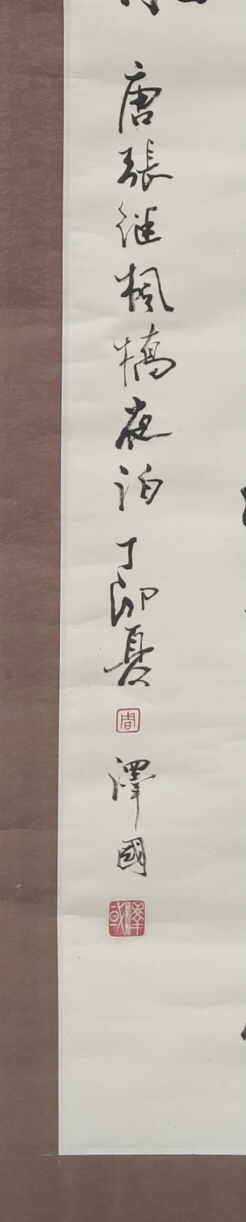 唐張继枫橋夜泊丁卯夏
周
澤國
澤國